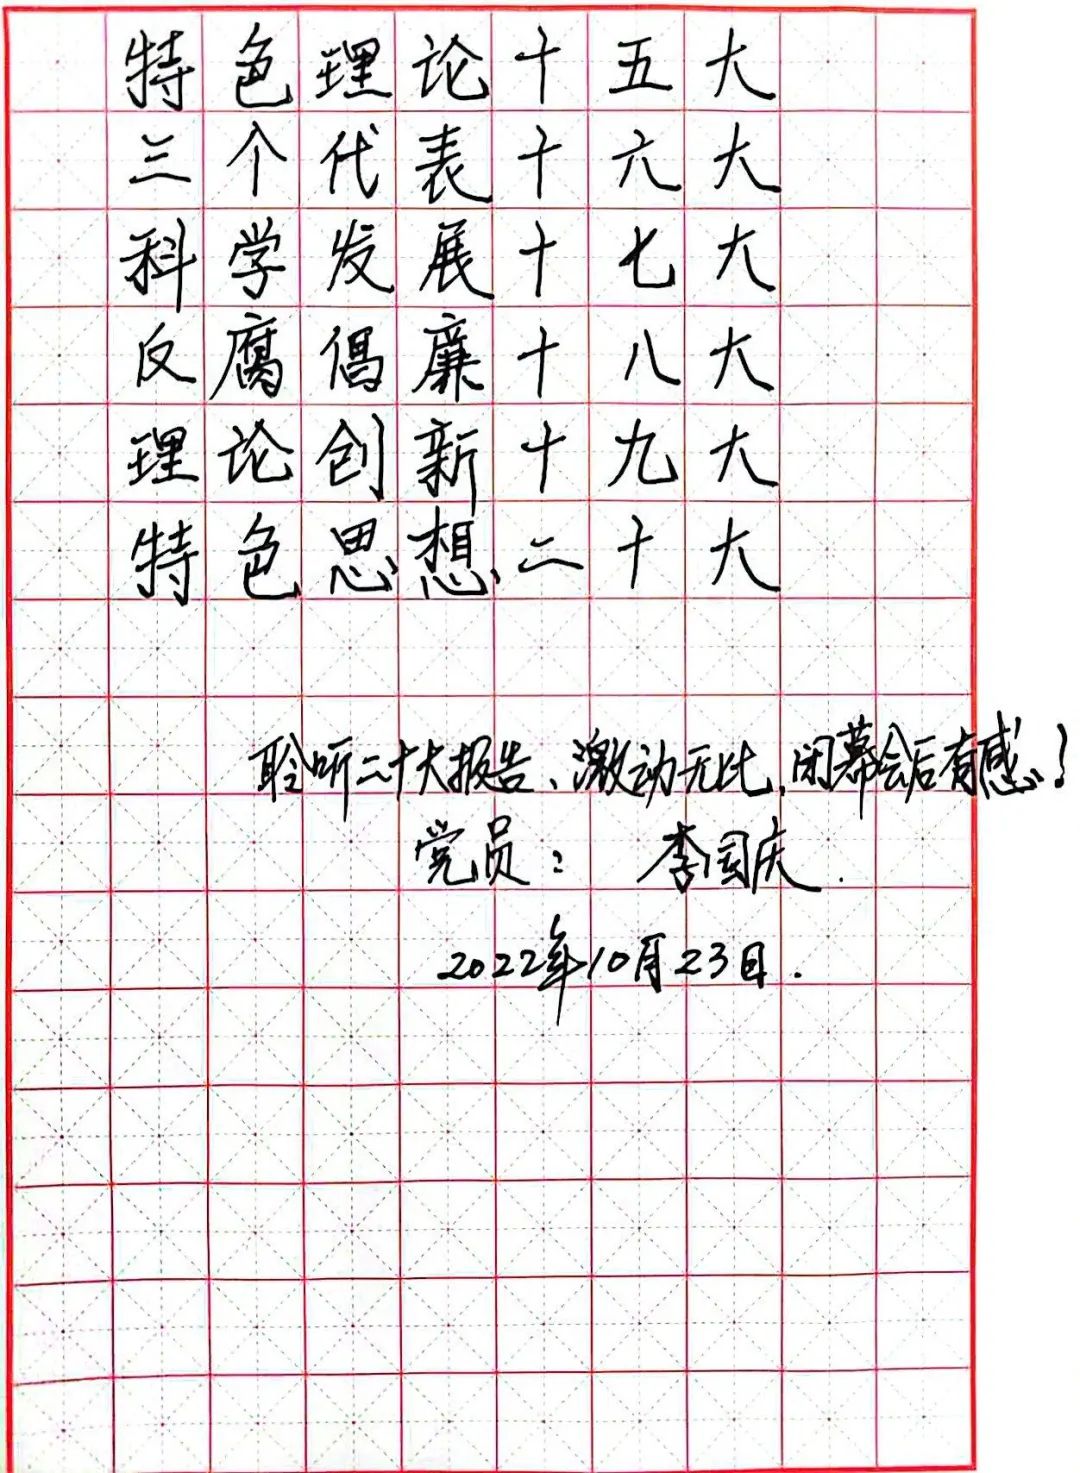 特色理论十五大
三个代表十六大
科学发展十七大
反腐倡廉十八大
理论创新十九大
特色思想二十大
聆听二十大报告、激动无比,闭幕会后有感!
党员: 李国庆.
2022年10月23日.